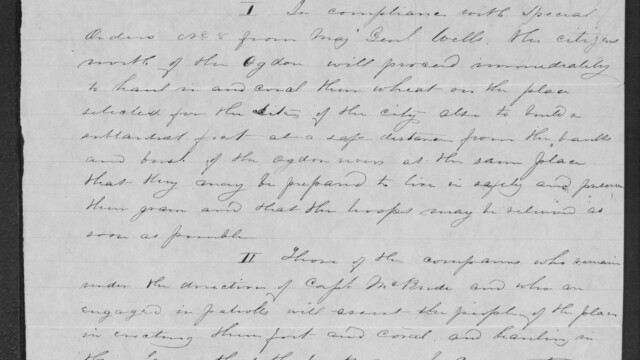 I In compliance with Special
Orders No 8 from Maj Genl Wells. The citizens
north of the Ogdon will proceed immediately
to haul in and coral their wheat on the place
selected for the site of the city also to build a
substantial fort at a safe distance from the banks
and brush of the Ogdon river at the same place
that they may be prepared to live in safety and preserve
their grain and that the troops may be relieved as
soon as possible
II Those of the companies who remain
under the direction of Capt McBride and who are
engaged in patrolls will assist the people of the place
in erecting their fort and coral and hauling in